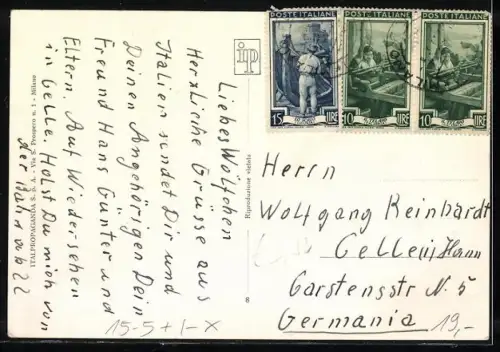 Liebes Wölfchen
Herzliche Grüsse aus
Italien sendet Dir und
Deinen Angehörigen Dein
Freund Hans Günter und
Eltern. Auf Wiedersehen
in Celle. Holst Du mich von
der Bahn ab??
ITALPROPAGANDA S. p. A. - Via S. Prospero n. 1 - Milano
ip
Riproduzione vietata
8
POSTE ITALIANE
15 LIRE
POSTE ITALIANE
10 LIRE
POSTE ITALIANE
10 LIRE
Herrn
Wolfgang Reinhardt
Celle
Garstensstr N. 5
Germania
19,-
15-5+1-X